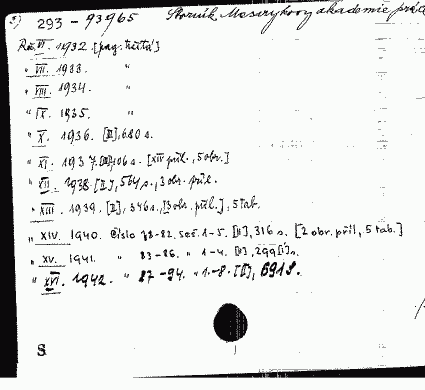 293 - 93965 Sborník Masarykovy akademie práce
Roč. VI. 1932. [pag. různá]
" VII. 1933. "
" VIII. 1934. "
" IX. 1935. "
" X. 1936. [II], 680 s.
" XI. 1937. [II], 106 s. [XIV příl., 5 obr.]
" XII. 1938. [II], 564 s., 3 obr. příl.
" XIII. 1939. [II], 346 s., [3 obr. příl.], 5 tab.
" XIV. 1940. Číslo 78-82. seš. 1-5. [II], 316 s. [2 obr. příl, 5 tab.]
" XV. 1941. " 83-86. " 1-4. [II], 299 [1] s.
" XVI. 1942. " 87-94. " 1.-8. [II], 691 s.
S